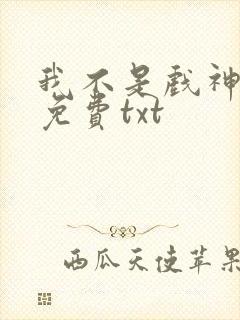 我不是戏神
免費txt
西瓜天使苹果